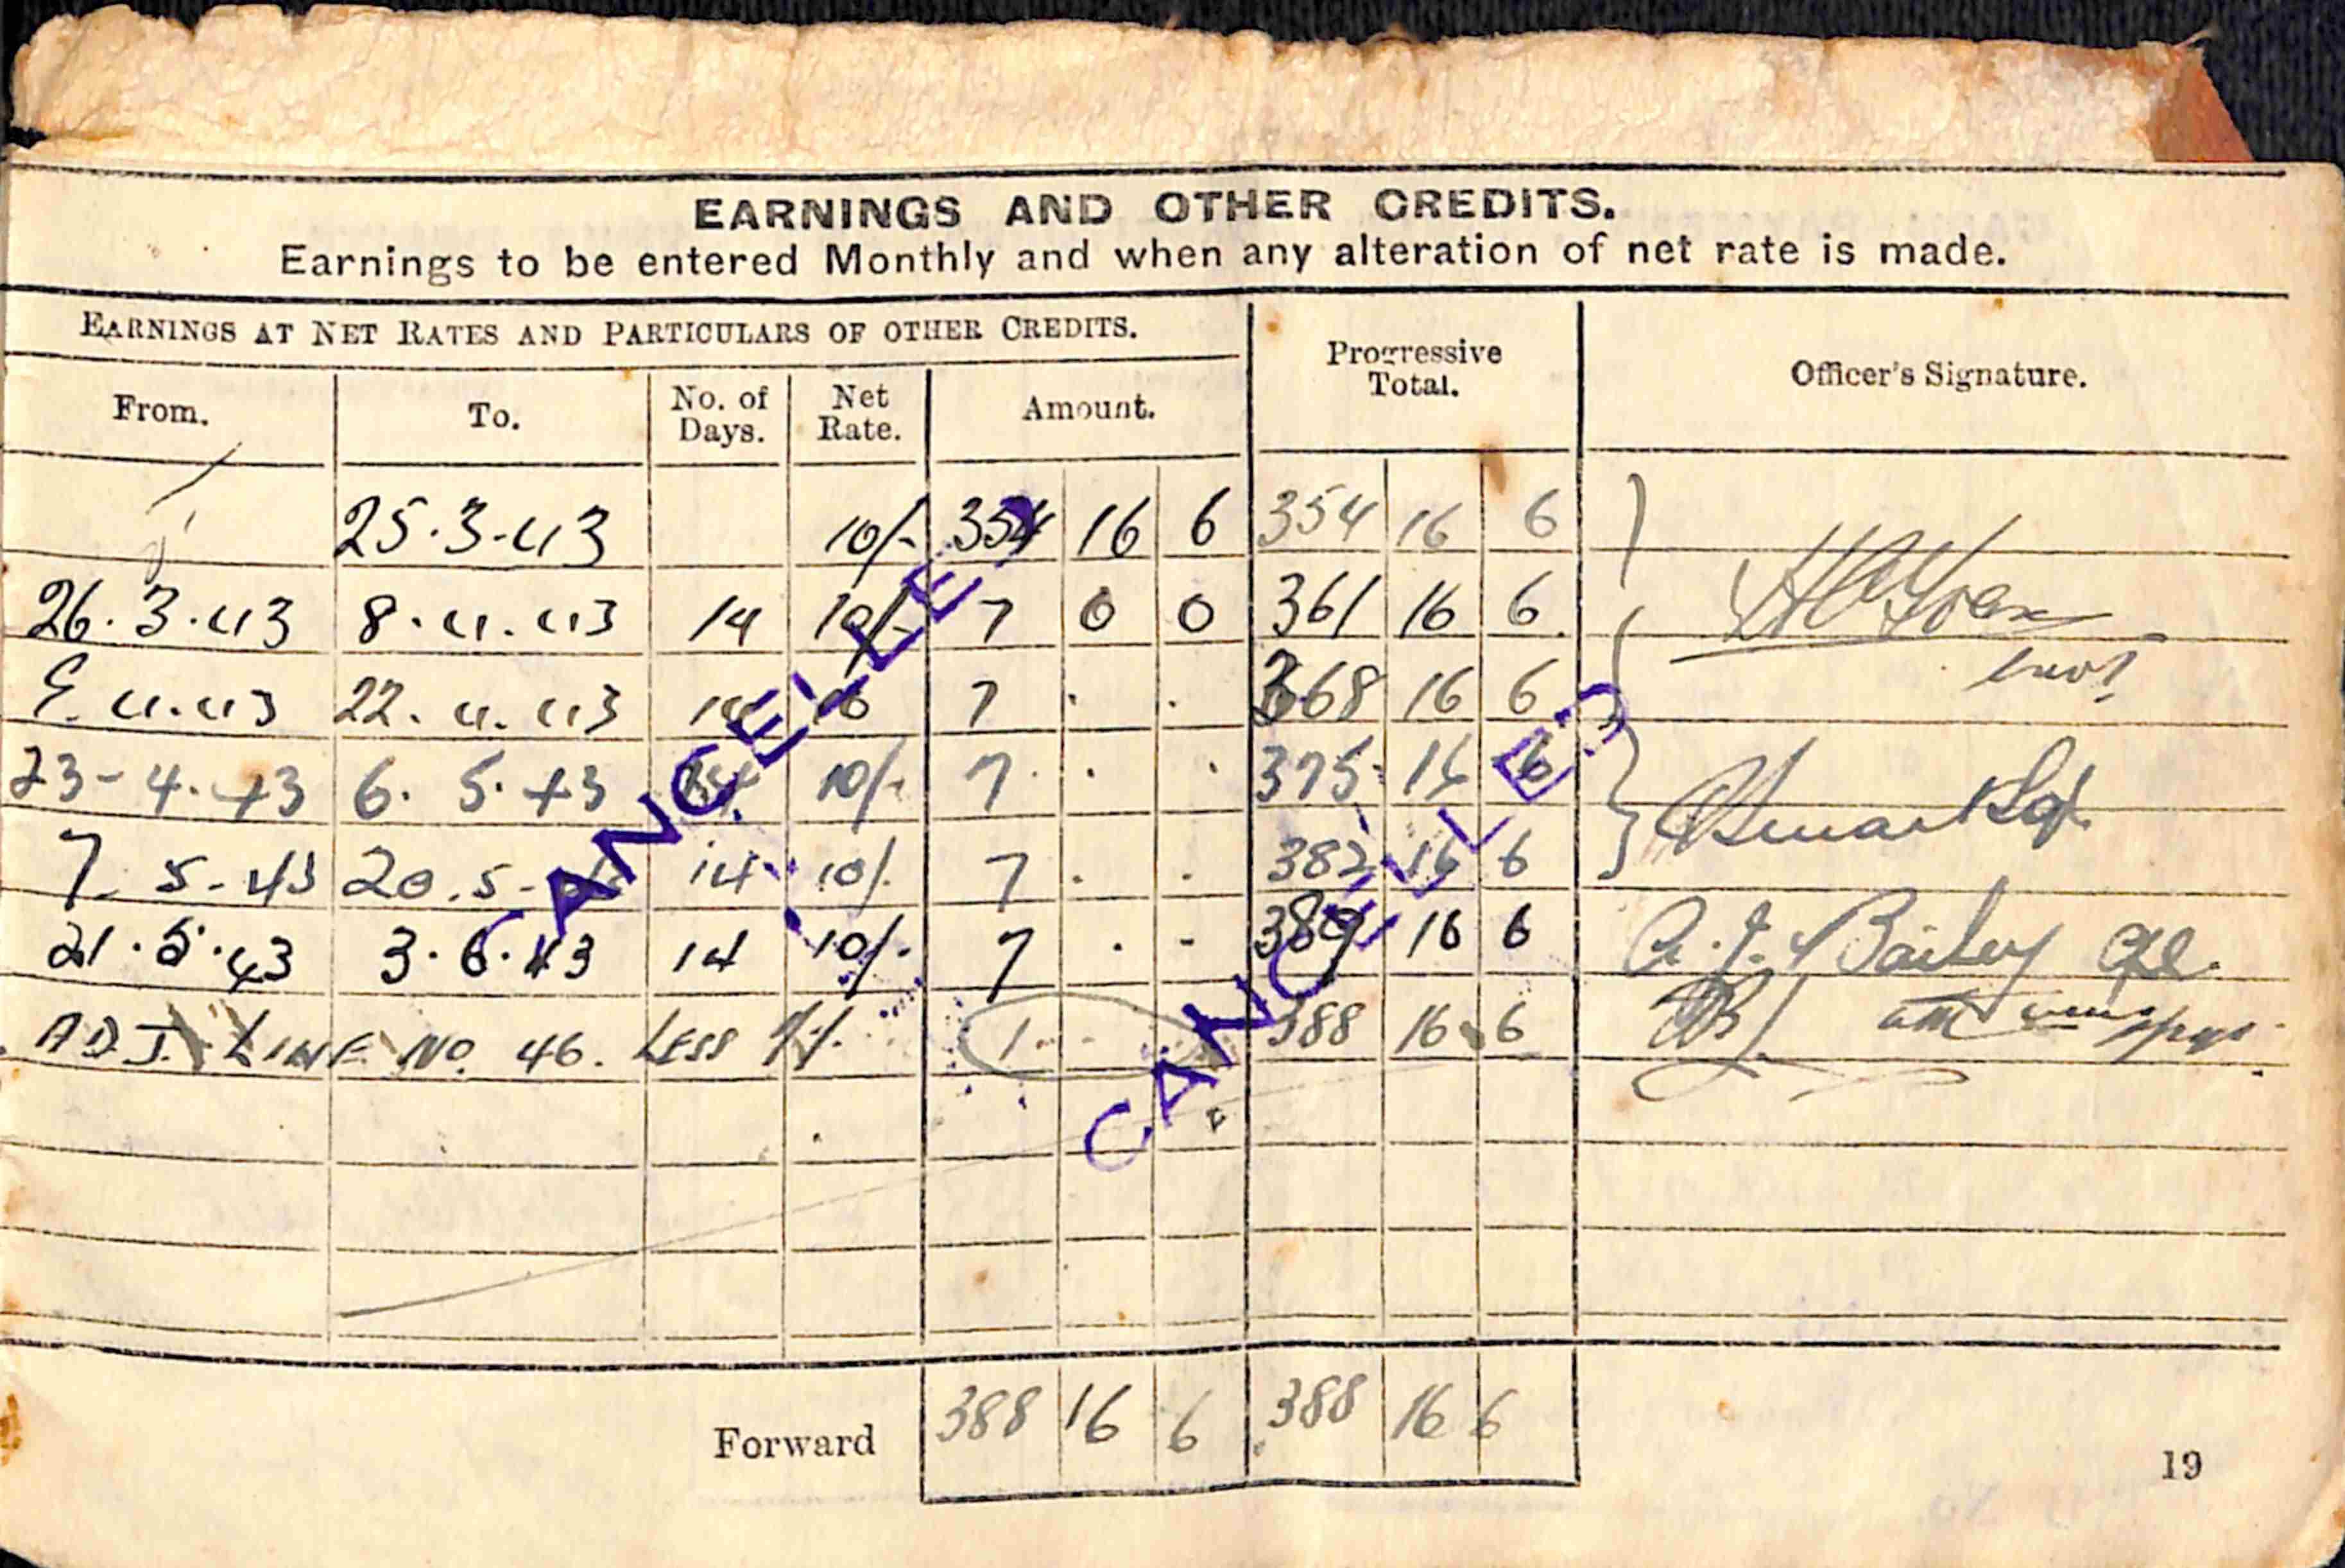 EARNINGS AND OTHER CREDITS.
Earnings to be entered Monthly and when any alteration of net rate is made.
EARNINGS AT NET RATES AND PARTICULARS OF OTHER CREDITS.
Progressive Total.
Officer's Signature.
From. To. No. of Days. Net Rate. Amount.
25.3.43 10/- 354 16 6 354 16 6
26.3.43 8.4.43 14 10/- 7 0 0 361 16 6
9.4.43 22.4.43 14 10 7 . . 368 16 6
23-4.43 6.5.43 14 10/- 7 . . 375 16 6
7.5-43 20.5-43 14 10/. 7 . . 382 16 6
21.5.43 3.6.43 14 10/- 7 . - 389 16 6 A.J. Bailey
ADJ. LINE No. 46. LESS 1 388 16 6
CANCELLED
CANCELLED
Forward 388 16 6 388 16 6
19